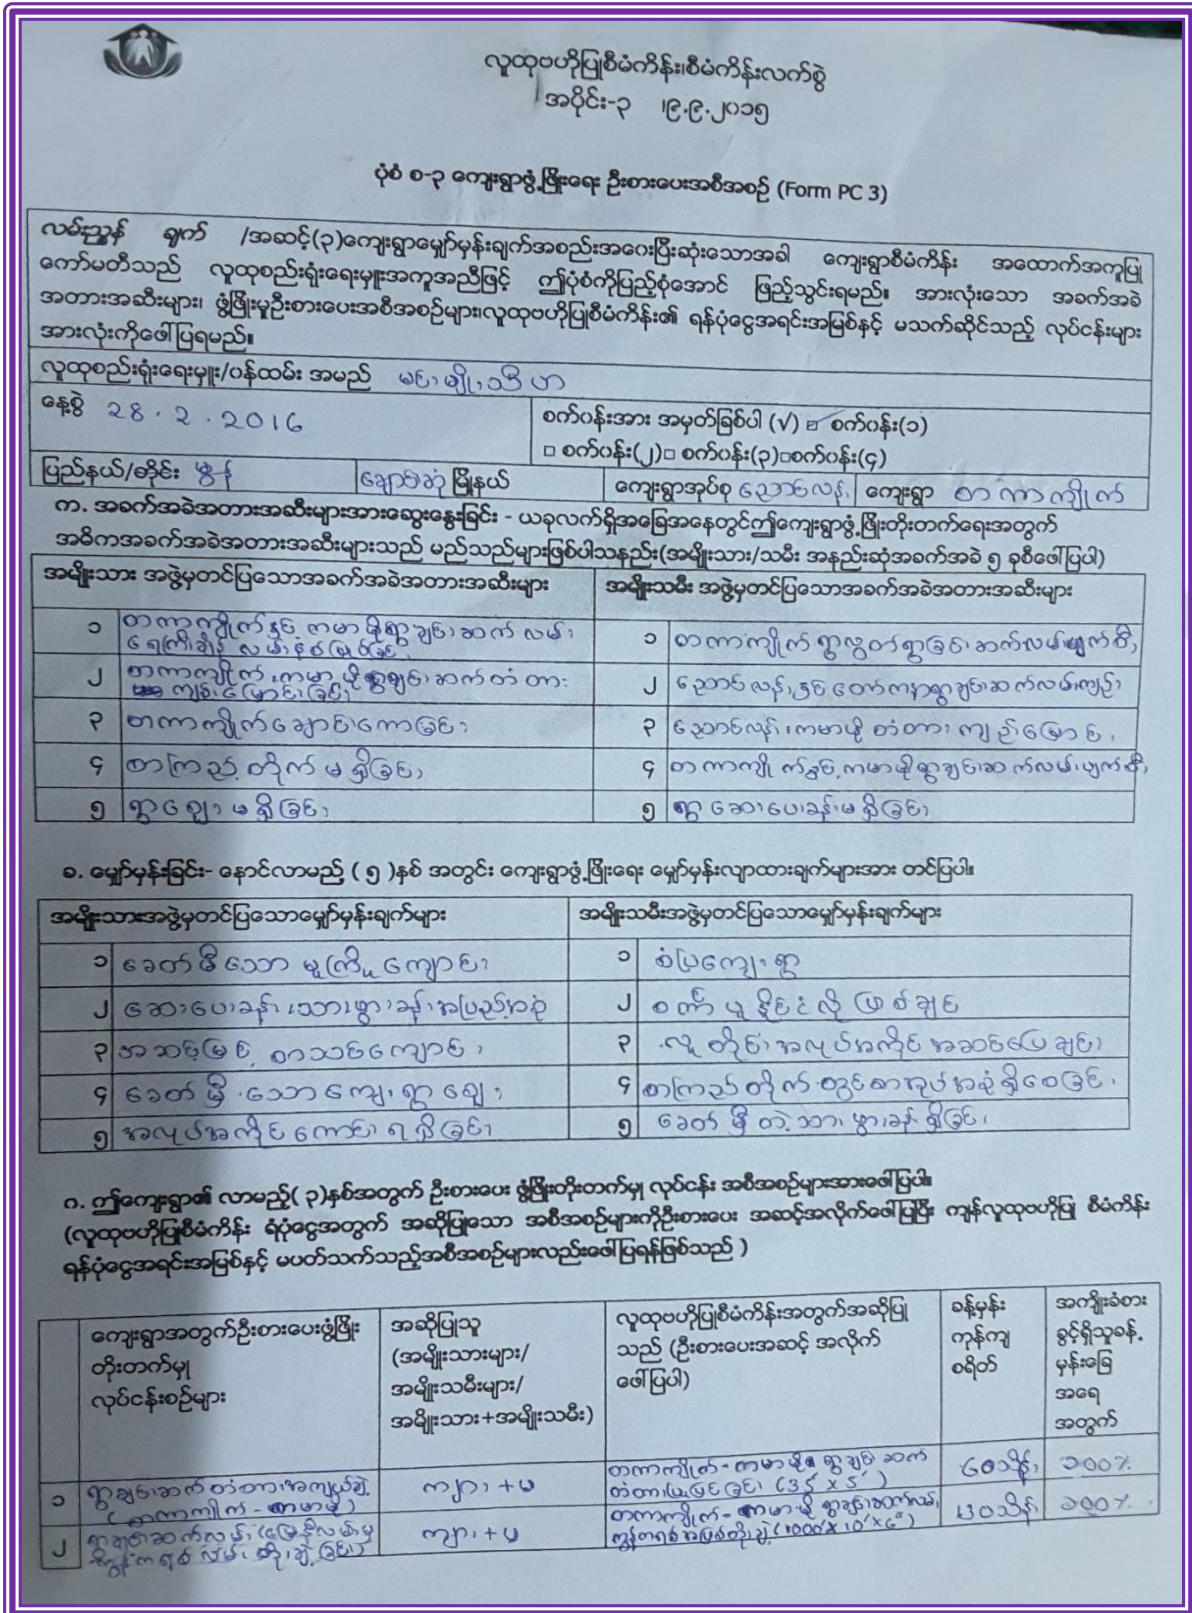 လူထုဗဟိုပြုစီမံကိန်း၊စီမံကိန်းလက်စွဲ
အပိုင်း-၃ ၊၉.၉.၂၀၁၅
ပုံစံ စ-၃ ကျေးရွာဖွံ့ဖြိုးရေး ဦးစားပေးအစီအစဉ် (Form PC 3)
လမ်းညွှန် ချက် /အဆင့်(၃)ကျေးရွာမျှော်မှန်းချက်အစည်းအဝေးပြီးဆုံးသောအခါ ကျေးရွာစီမံကိန်း အထောက်အကူပြု
ကော်မတီသည် လူထုစည်းရုံးရေးမှူးအကူအညီဖြင့် ဤပုံစံကိုပြည့်စုံအောင် ဖြည့်သွင်းရမည်။ အားလုံးသော အခက်အခဲ
အတားအဆီးများ၊ ဖွံ့ဖြိုးမှုဦးစားပေးအစီအစဉ်များ၊လူထုဗဟိုပြုစီမံကိန်း၏ ရန်ပုံငွေအရင်းအမြစ်နှင့် မသက်ဆိုင်သည့် လုပ်ငန်းများ
အားလုံးကိုဖေါ်ပြရမည်။
လူထုစည်းရုံးရေးမှူး/ဝန်ထမ်း အမည် မင်းမျိုးသီဟ
နေ့စွဲ 28.2.2016
စက်ဝန်းအား အမှတ်ခြစ်ပါ (√) ☑ စက်ဝန်း(၁)
□ စက်ဝန်း(၂)□ စက်ဝန်း(၃)□စက်ဝန်း(၄)
ပြည်နယ်/တိုင်း မွန် ချောင်းဆုံ မြို့နယ် ကျေးရွာအုပ်စု ညောင်လန်း ကျေးရွာ တကာကျိုက်
က. အခက်အခဲအတားအဆီးများအားဆွေးနွေးခြင်း - ယခုလက်ရှိအခြေအနေတွင်ဤကျေးရွာဖွံ့ဖြိုးတိုးတက်ရေးအတွက်
အဓိကအခက်အခဲအတားအဆီးများသည် မည်သည်များဖြစ်ပါသနည်း(အမျိုးသား/သမီး အနည်းဆုံးအခက်အခဲ ၅ ခုစီဖေါ်ပြပါ)
အမျိုးသား အဖွဲ့မှတင်ပြသောအခက်အခဲအတားအဆီးများ အမျိုးသမီး အဖွဲ့မှတင်ပြသောအခက်အခဲအတားအဆီးများ
၁ တကာကျိုက်နှင့် ကမာမိုရွာချင်းဆက် လမ်း
ရေကြီးချိန် လမ်းနစ်မြုပ်ခြင်း
၁ တကာကျိုက် ရွာလွတ်ရွာခြင်းဆက်လမ်းပျက်စီး
၂ တကာကျိုက် ၊ကမာမိုရွာချင်းဆက်တံတား
ကျဉ်းမြောင်းခြင်း
၂ ညောင်လန်းနှင့် ရွာချင်းဆက်လမ်းကျဉ်း
၃ တကာကျိုက်ချောင်းကောခြင်း ၃ ညောင်လန်း၊ကမာမို တံတား ကျဉ်းမြောင်း
၄ စာကြည့်တိုက် မရှိခြင်း ၄ တကာကျိုက်နှင့် ကမာမိုရွာချင်းဆက်လမ်းပျက်စီး
၅ ရွာဈေး မရှိခြင်း ၅ ရွာဆေးပေးခန်းမရှိခြင်း
ခ. မျှော်မှန်းခြင်း- နောင်လာမည့် ( ၅ )နှစ် အတွင်း ကျေးရွာဖွံ့ဖြိုးရေး မျှော်မှန်းလျာထားချက်များအား တင်ပြပါ။
အမျိုးသားအဖွဲ့မှတင်ပြသောမျှော်မှန်းချက်များ အမျိုးသမီးအဖွဲ့မှတင်ပြသောမျှော်မှန်းချက်များ
၁ ခေတ်မီသော မူကြိုကျောင်း ၁ စံပြကျေးရွာ
၂ ဆေးပေးခန်း ၊သားဖွားခန်းအပြည့်အစုံ ၂ စင်္ကာပူနိုင်ငံလို ဖြစ်ချင်
၃ အဆင့်မြင့် စာသင်ကျောင်း ၃ လူတိုင်းအလုပ်အကိုင်အဆင်ပြေချင်း
၄ ခေတ်မှီသောကျေးရွာဈေး ၄ စာကြည့်တိုက်တွင်စာအုပ်အစုံရှိစေခြင်း
၅ အလုပ်အကိုင်ကောင်းရရှိခြင်း ၅ ခေတ်မှီတဲ့သားဖွားခန်းရှိခြင်း
ဂ. ဤကျေးရွာ၏ လာမည့်( ၃)နှစ်အတွက် ဦးစားပေး ဖွံ့ဖြိုးတိုးတက်မှု လုပ်ငန်း အစီအစဉ်များအားဖေါ်ပြပါ။
(လူထုဗဟိုပြုစီမံကိန်း ရံပုံငွေအတွက် အဆိုပြုသော အစီအစဉ်များကိုဦးစားပေး အဆင့်အလိုက်ဖေါ်ပြပြီး ကျန်လူထုဗဟိုပြု စီမံကိန်း
ရန်ပုံငွေအရင်းအမြစ်နှင့် မပတ်သက်သည့်အစီအစဉ်များလည်းဖေါ်ပြရန်ဖြစ်သည် )
ကျေးရွာအတွက်ဦးစားပေးဖွံ့ဖြိုး
တိုးတက်မှု
လုပ်ငန်းစဉ်များ
အဆိုပြုသူ
(အမျိုးသားများ/
အမျိုးသမီးများ/
အမျိုးသား+အမျိုးသမီး)
လူထုဗဟိုပြုစီမံကိန်းအတွက်အဆိုပြု
သည် (ဦးစားပေးအဆင့် အလိုက်
ဖေါ်ပြပါ)
ခန့်မှန်း
ကုန်ကျ
စရိတ်
အကျိုးခံစား
ခွင့်ရှိသူခန့်
မှန်းခြေ
အရေ
အတွက်
၁ ရွာချင်းဆက်တံတားအကျယ်ချဲ့
(တကာကျိုက် - ကမာမို)
ကျား+မ
တကာကျိုက် - ကမာမို ရွာချင်းဆက်
တံတားပြုပြင်ခြင်း (35' x 5')
60သိန်း
၁၀၀%
၂ ရွာချင်းဆက်လမ်း (မြေနီလမ်းမှ
ကွန်ကရစ်လမ်း တိုးချဲ့ခြင်း)
ကျား+မ
တကာကျိုက် - ကမာမို ရွာချင်းဆက်လမ်း
ကွန်ကရစ်အဖြစ်တိုးချဲ့ (1000'x10'x6")
130သိန်း
၁၀၀%